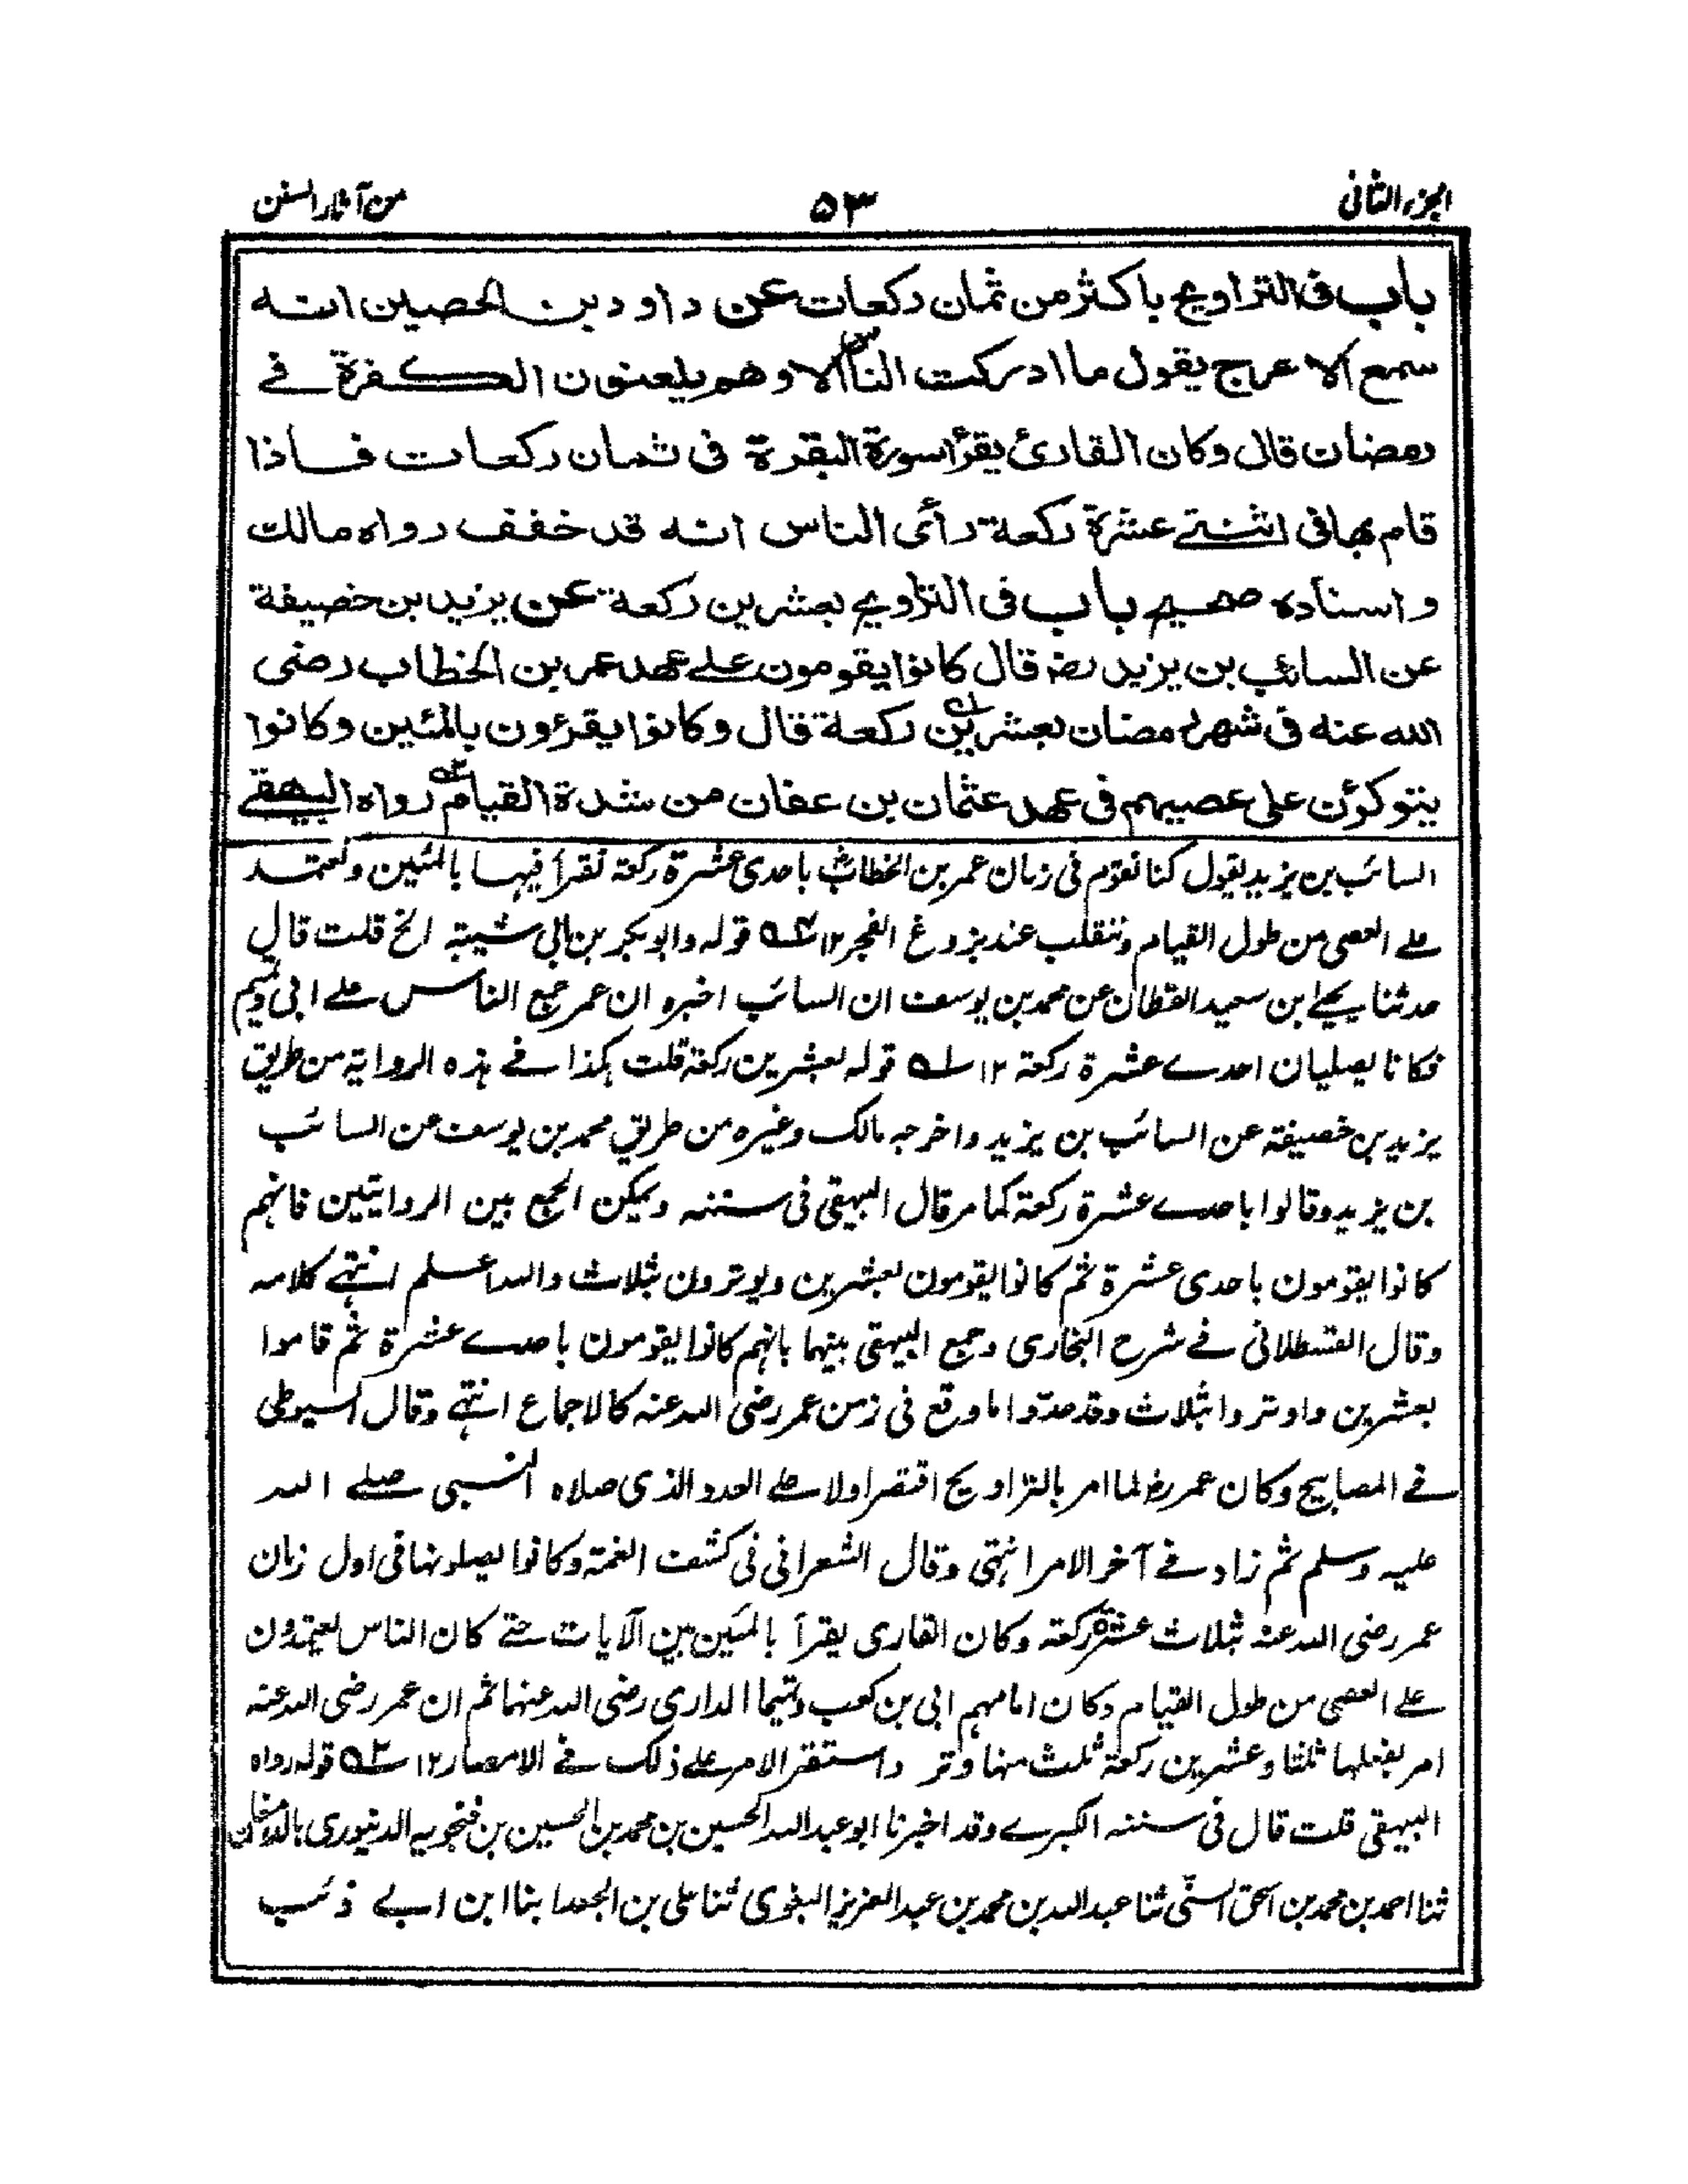 الجزء الثانی
۵۳
من آثار السنن
باب فی التراویح باکثر من ثمان رکعات عن داود بن الحصین انه
سمع الاعرج یقول ما ادرکت الناس الا وهم یلعنون الکفرة فے
رمضان قال وکان القارئ یقرأ سورة البقرة فی ثمان رکعات فاذا
قام بها فی اثنتے عشرة رکعة رأی الناس انه قد خفف رواه مالک
واسناده صحیح باب فی التراویح بعشرین رکعة عن یزید بن خصیفة
عن السائب بن یزید رضـ قال کانوا یقومون علے عهد عمر بن الخطاب رضی
الله عنه فی شهر رمضان بعشرین ؎۱ رکعة قال وکانوا یقرؤن بالمئین وکانوا
یتوکؤن علی عصیهم فی عهد عثمان بن عفان من شدة القیام ؎۲ رواه البیهقے
السائب بن یزید یقول کنا نقوم فی زمان عمر بن الخطابؓ باحدی عشرة رکعة نقرأ فیها بالمئین ونعتمد
علے العصی من طول القیام وننقلب عند بزوغ الفجر ۱۲ ؎۴ قوله وابو بکر بن ابی شیبة الخ قلت قال
حدثنا یحیٰے بن سعید القطان عن محمد بن یوسف ان السائب اخبره ان عمر جمع الناس علے ابی وتمیم
فکانا یصلیان احدے عشرة رکعة ۱۲ ؎۱ قوله بعشرین رکعة قلت هکذا فے هذه الروایة من طریق
یزید بن خصیفة عن السائب بن یزید واخرجه مالک وغیره من طریق محمد بن یوسف عن السائب
بن یزید وقالوا باحدے عشرة رکعة کما مر قال البیهقی فی سننه ویمکن الجمع بین الروایتین فانهم
کانوا یقومون باحدی عشرة ثم کانوا یقومون بعشرین ویوترون بثلاث والله اعلم انتهٰے کلامه
وقال القسطلانی فے شرح البخاری وجمع البیهقی بینهما بانهم کانوا یقومون باحدے عشرة ثم قاموا
بعشرین واوتروا بثلاث وقد عدّوا ما وقع فی زمن عمر رضی الله عنه کالاجماع انتهٰے وقال السیوطی
فے المصابیح وکان عمر رضـ لما امر بالتراویح اقتصر اولا علے العدد الذی صلاه النبی صلے الله
علیه وسلم ثم زاد فے آخر الامر انتهی وقال الشعرانی فی کشف الغمة وکانوا یصلونها فی اول زمان
عمر رضی الله عنه بثلاث عشرة رکعة وکان القاری یقرأ بالمئین من الآیات حتے کان الناس یعتمدون
علے العصی من طول القیام وکان امامهم ابی بن کعب وتمیما الداری رضی الله عنهما ثم ان عمر رضی الله عنه
امر بفعلها ثلثا وعشرین رکعة ثلث منها وتر واستقر الامر علے ذلک فے الامصار ۱۲ ؎۲ قوله رواه
البیهقی قلت قال فی سننه الکبرے وقد اخبرنا ابو عبد الله الحسین بن محمد بن الحسین بن فنجویه الدینوری بالدامغان
ثنا احمد بن محمد بن اسحق السنّی ثنا عبد الله بن محمد بن عبد العزیز البغوی ثنا علی بن الجعد ابنا ابن ابے ذئب